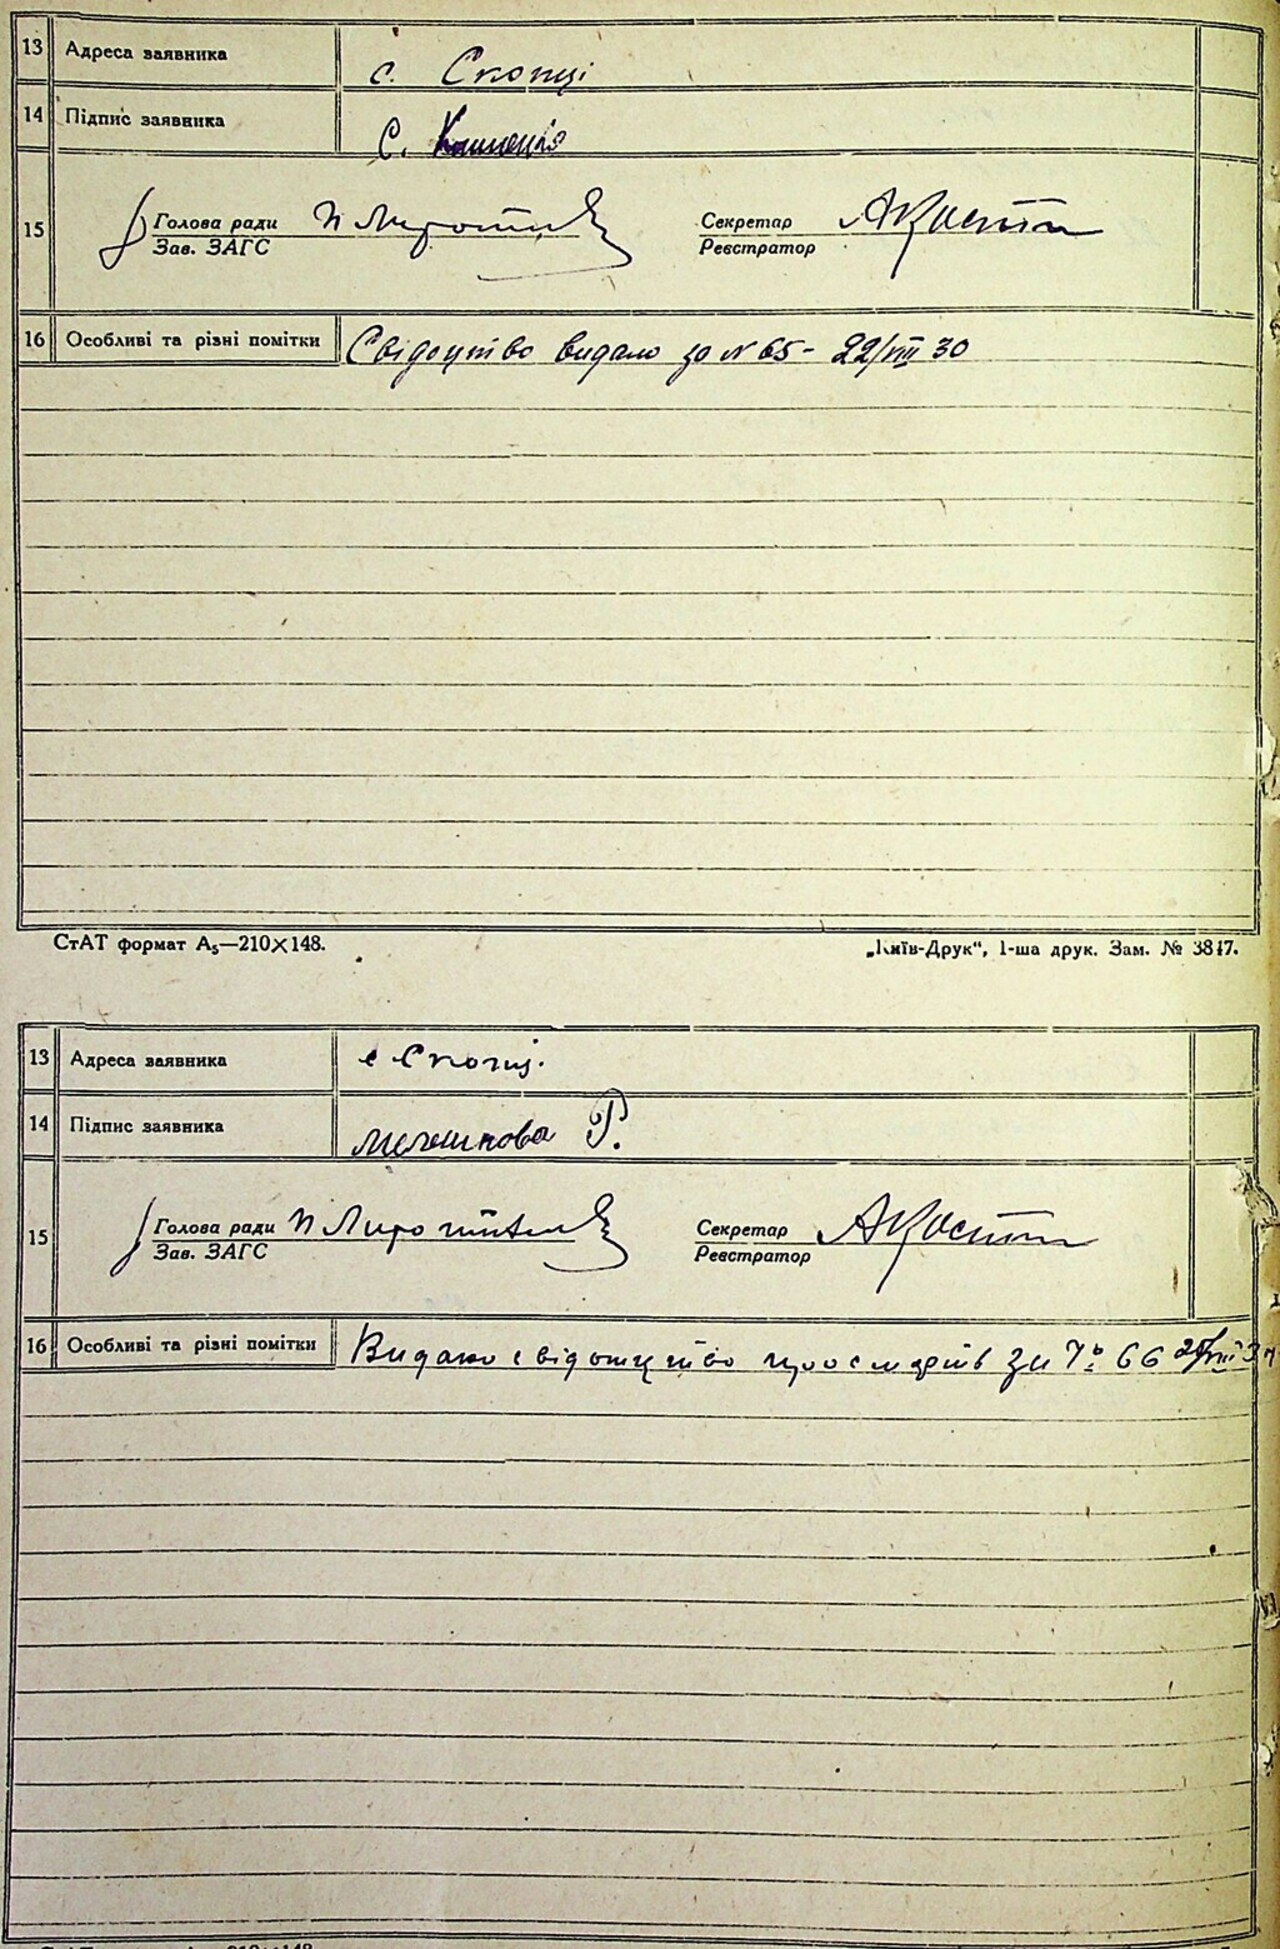 13 Адреса заявника с. Скопці
14 Підпис заявника С.
15 Голова ради Секретар
Зав. ЗАГС Реєстратор
16 Особливі та різні помітки Свідоцтво видано за N 65 - 22/VIII 30
СтАТ формат А5—210×148. „Київ-Друк“, 1-ша друк. Зам. № 3847.
13 Адреса заявника с Скопці.
14 Підпис заявника Р.
15 Голова ради Секретар
Зав. ЗАГС Реєстратор
16 Особливі та різні помітки Видано свідоцтво про смерть за № 66